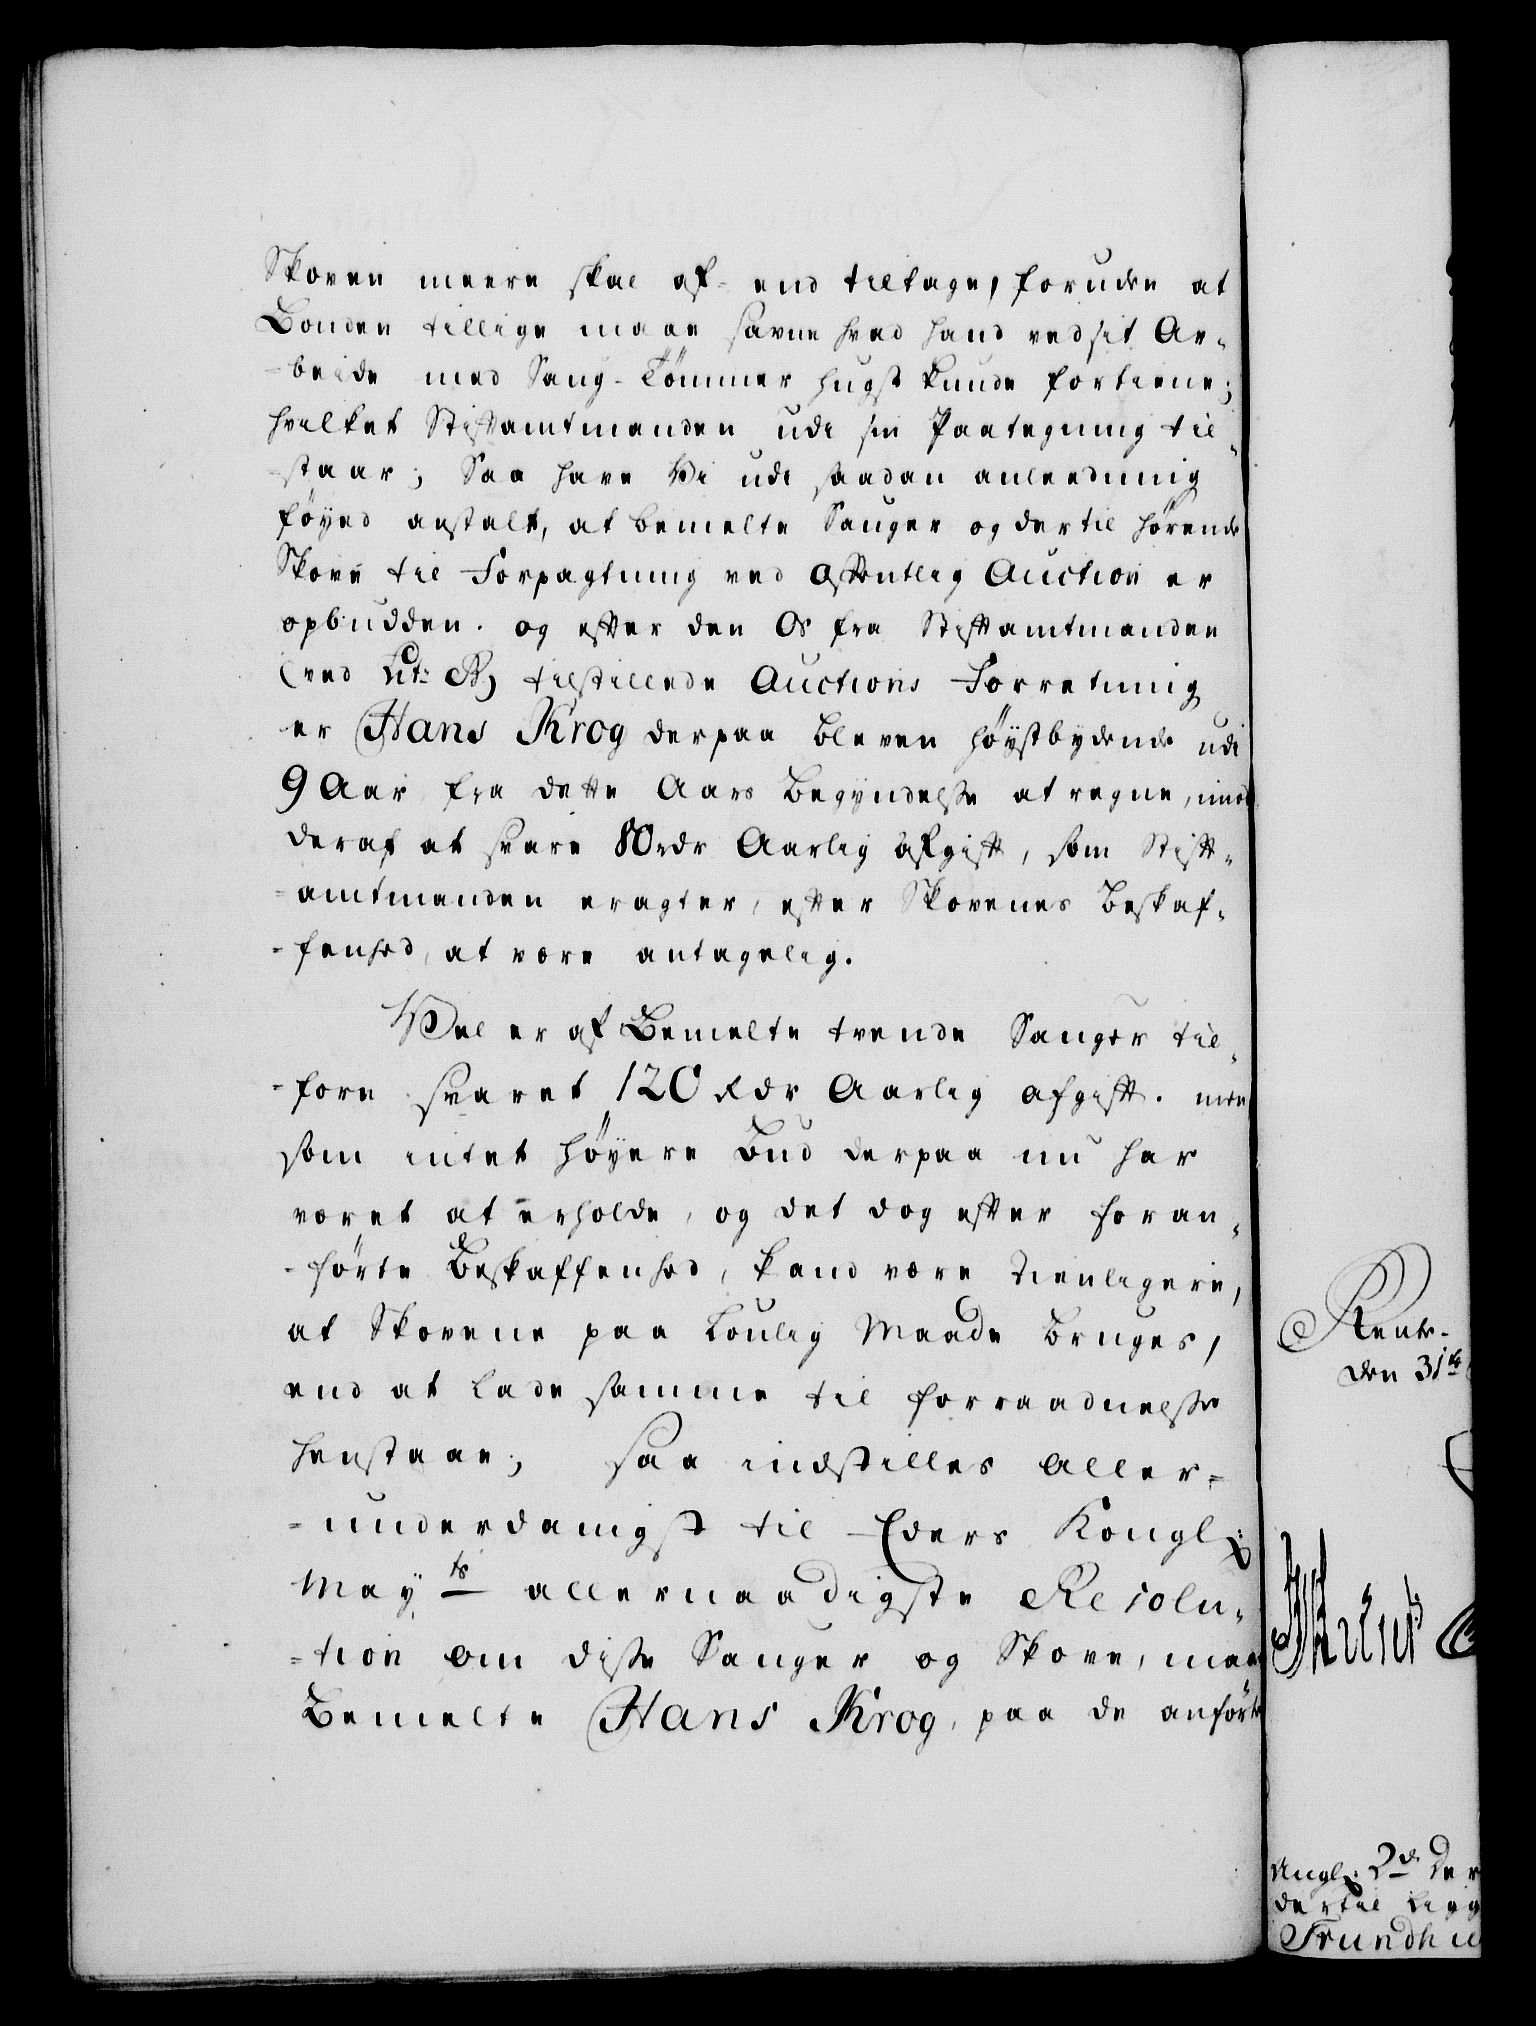 Skoven meere skal af- end tiltage, foruden at
Bonden tillige maae savne hvad hand ved sit Ar-
-beide med Saug-Tömmer hugst kunde fortiene;
hvilket Stiftamtmanden udi sin Paategning til-
-staar; Saa have Vi udi saadan anleedning
føyed anstalt, at bemelte Sauger og dertil hørende
Skove til Forpagtning ved offentlig Auction er
opbudden. og efter den Os fra Stiftamtmanden
(ved Lit: B) tilstillede Auctions Forretning
er Hans Krog derpaa bleven høystbydende udi
9 Aar fra dette Aars Begyndelse at regne, imod
deraf at svare 80 rdr Aarlig afgift, som Stift-
-amtmanden eragter, efter Skovenes Beskaf-
-fenhed, at være antagelig.
Vel er af Bemelte trende Sauger til-
-forn svaret 120 Rdr Aarlig afgift. men
som intet høyere Bud derpaa nu har
været at erholde, og det dog efter foran-
-førte Beskaffenhed, kand være tienligere,
at Skovene paa Loulig Maade bruges,
end at lade samme til forraadnelse
henstaae; saa indstilles Aller-
-underdanigst til Eders Kongl:
May ts allernaadigste Resolu-
-tion om disse Sauger og Skove, maae
Bemelte Hans Krog, paa de anførte
Rente-
den 31te
Angl: 2de Der
dertil ligg
Trundhie